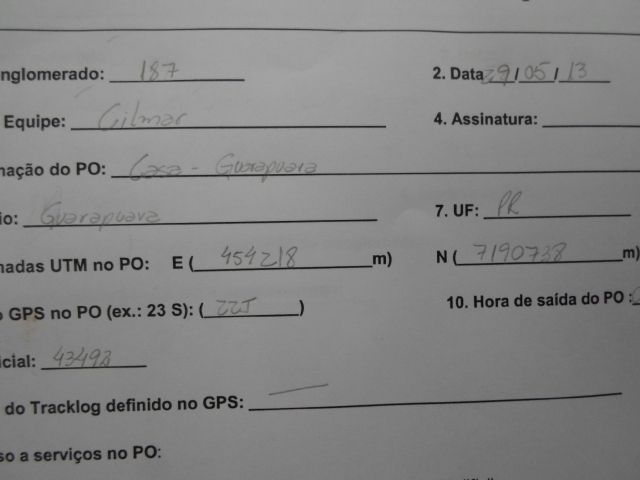 nglomerado: 187 2. Data 29/05/13
Equipe: Gilmar 4. Assinatura:
nação do PO: Casa - Guarapuava
io: Guarapuava 7. UF: PR
nadas UTM no PO: E (454218 m) N (7190738 m)
o GPS no PO (ex.: 23 S): (22J) 10. Hora de saída do PO :
icial: 43492
do Tracklog definido no GPS:
so a serviços no PO: